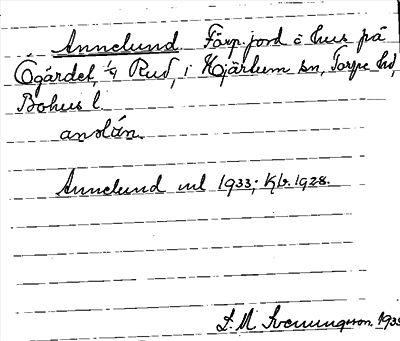 Annelund Förp. jord o hus på
Ögärdet, 1/9 Rud, i Hjärtum sn, Torpe hd,
Bohus l.
anslån.
Annelund ml 1933; Kbr. 1928.
S. M Svenungsson. 1935